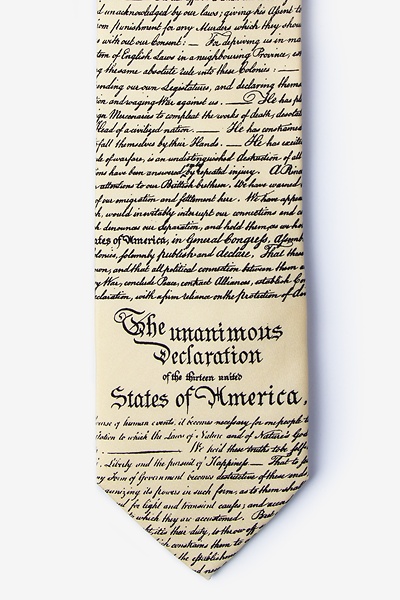 d unacknowledged by our laws; giving his Assent t
om punishment for any Murders which they shou
s without our Consent: — For depriving us in ma
tem of English Laws in a neighbouring Province, es
g the same absolute rule into these Colonies: —
ending our own Legislatures, and declaring thems
ion and waging War against us. — He has pl
gn Mercenaries to compleat the works of death, desolat
Head of a civilized nation. — He has constrained
fall themselves by their Hands. — He has excite
de of warfare, is an undistinguished destruction of all
ns have been answered by repeated injury. A Prin
attentions to our Brittish brethren. We have warned
of our emigration and settlement here. We have appea
h, would inevitably interrupt our connections and co
h denounces our Separation, and hold them, as we ho
ates of America, in General Congress, Assem
lonies, solemnly publish and declare, That these
wn, and that all political connection between them a
y War, conclude Peace, contract Alliances, establish Co
eclaration, with a firm reliance on the protection of
The unanimous
Declaration
of the thirteen united
States of America,
ourse of human events, it becomes necessary for one people t
tation to which the Laws of Nature and of Nature's God
We hold these truths to be self
, Liberty and the pursuit of Happiness — That to s
y Form of Government becomes destructive of these ends
ganizing its powers in such form, as to them shal
d for light and transient causes; and accor
to which they are accustomed. But
t, it is their duty, to throw off
which constrains them to
the establishmen